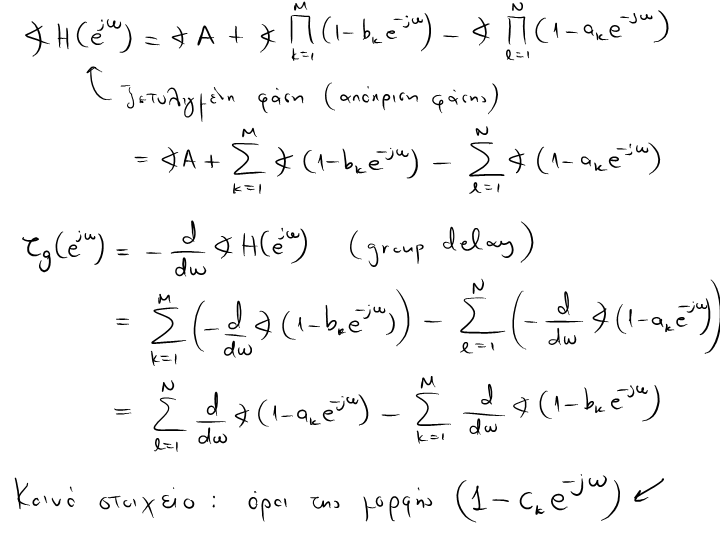 ∢ H(e^{jω}) = ∢ A + ∢ ∏_{k=1}^{M} (1 - b_k e^{-jω}) - ∢ ∏_{l=1}^{N} (1 - a_k e^{-jω})
ξετυλιγμένη φάση (απόκριση φάσης)
= ∢A + ∑_{k=1}^{M} ∢ (1 - b_k e^{-jω}) - ∑_{l=1}^{N} ∢ (1 - a_k e^{-jω})
τ_g(e^{jω}) = - d/dω ∢ H(e^{jω}) (group delay)
= ∑_{k=1}^{M} (- d/dω ∢ (1 - b_k e^{-jω})) - ∑_{l=1}^{N} (- d/dω ∢ (1 - a_k e^{-jω}))
= ∑_{l=1}^{N} d/dω ∢ (1 - a_k e^{-jω}) - ∑_{k=1}^{M} d/dω ∢ (1 - b_k e^{-jω})
Κοινό στοιχείο : όροι της μορφής (1 - c_k e^{-jω}) ↙